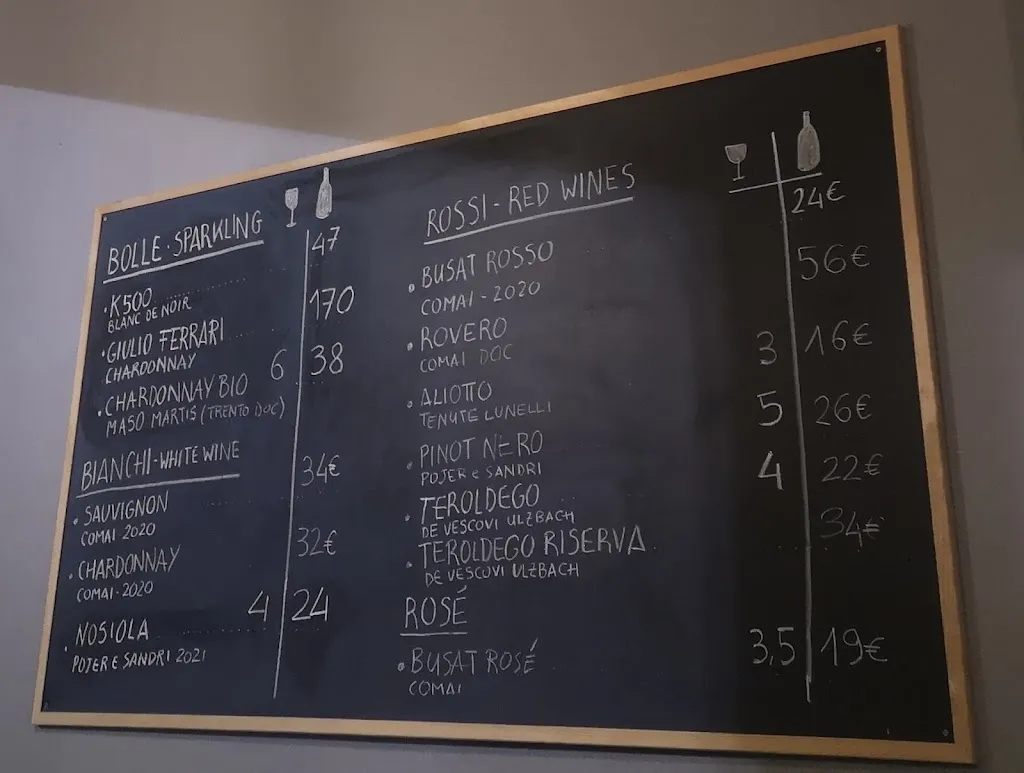 BOLLE - SPARKLING
• K500 ........ 47
BLANC DE NOIR
• GIULIO FERRARI ..... 170
CHARDONNAY
• CHARDONNAY BIO 6 38
MASO MARTIS (TRENTO DOC)
BIANCHI - WHITE WINE
• SAUVIGNON ........ 34€
COMAI 2020
• CHARDONNAY ........ 32€
COMAI - 2020
• NOSIOLA ........ 4 24
POJER E SANDRI 2021
ROSSI - RED WINES
• BUSAT ROSSO ........ 24€
COMAI - 2020
• ROVERO ........ 56€
COMAI DOC
• ALIOTTO ........ 3 16€
TENUTE LUNELLI
• PINOT NERO ........ 5 26€
POJER E SANDRI
• TEROLDEGO ........ 4 22€
DE VESCOVI ULZBACH
• TEROLDEGO RISERVA ........ 34€
DE VESCOVI ULZBACH
ROSÉ
• BUSAT ROSÉ ........ 3,5 19€
COMAI